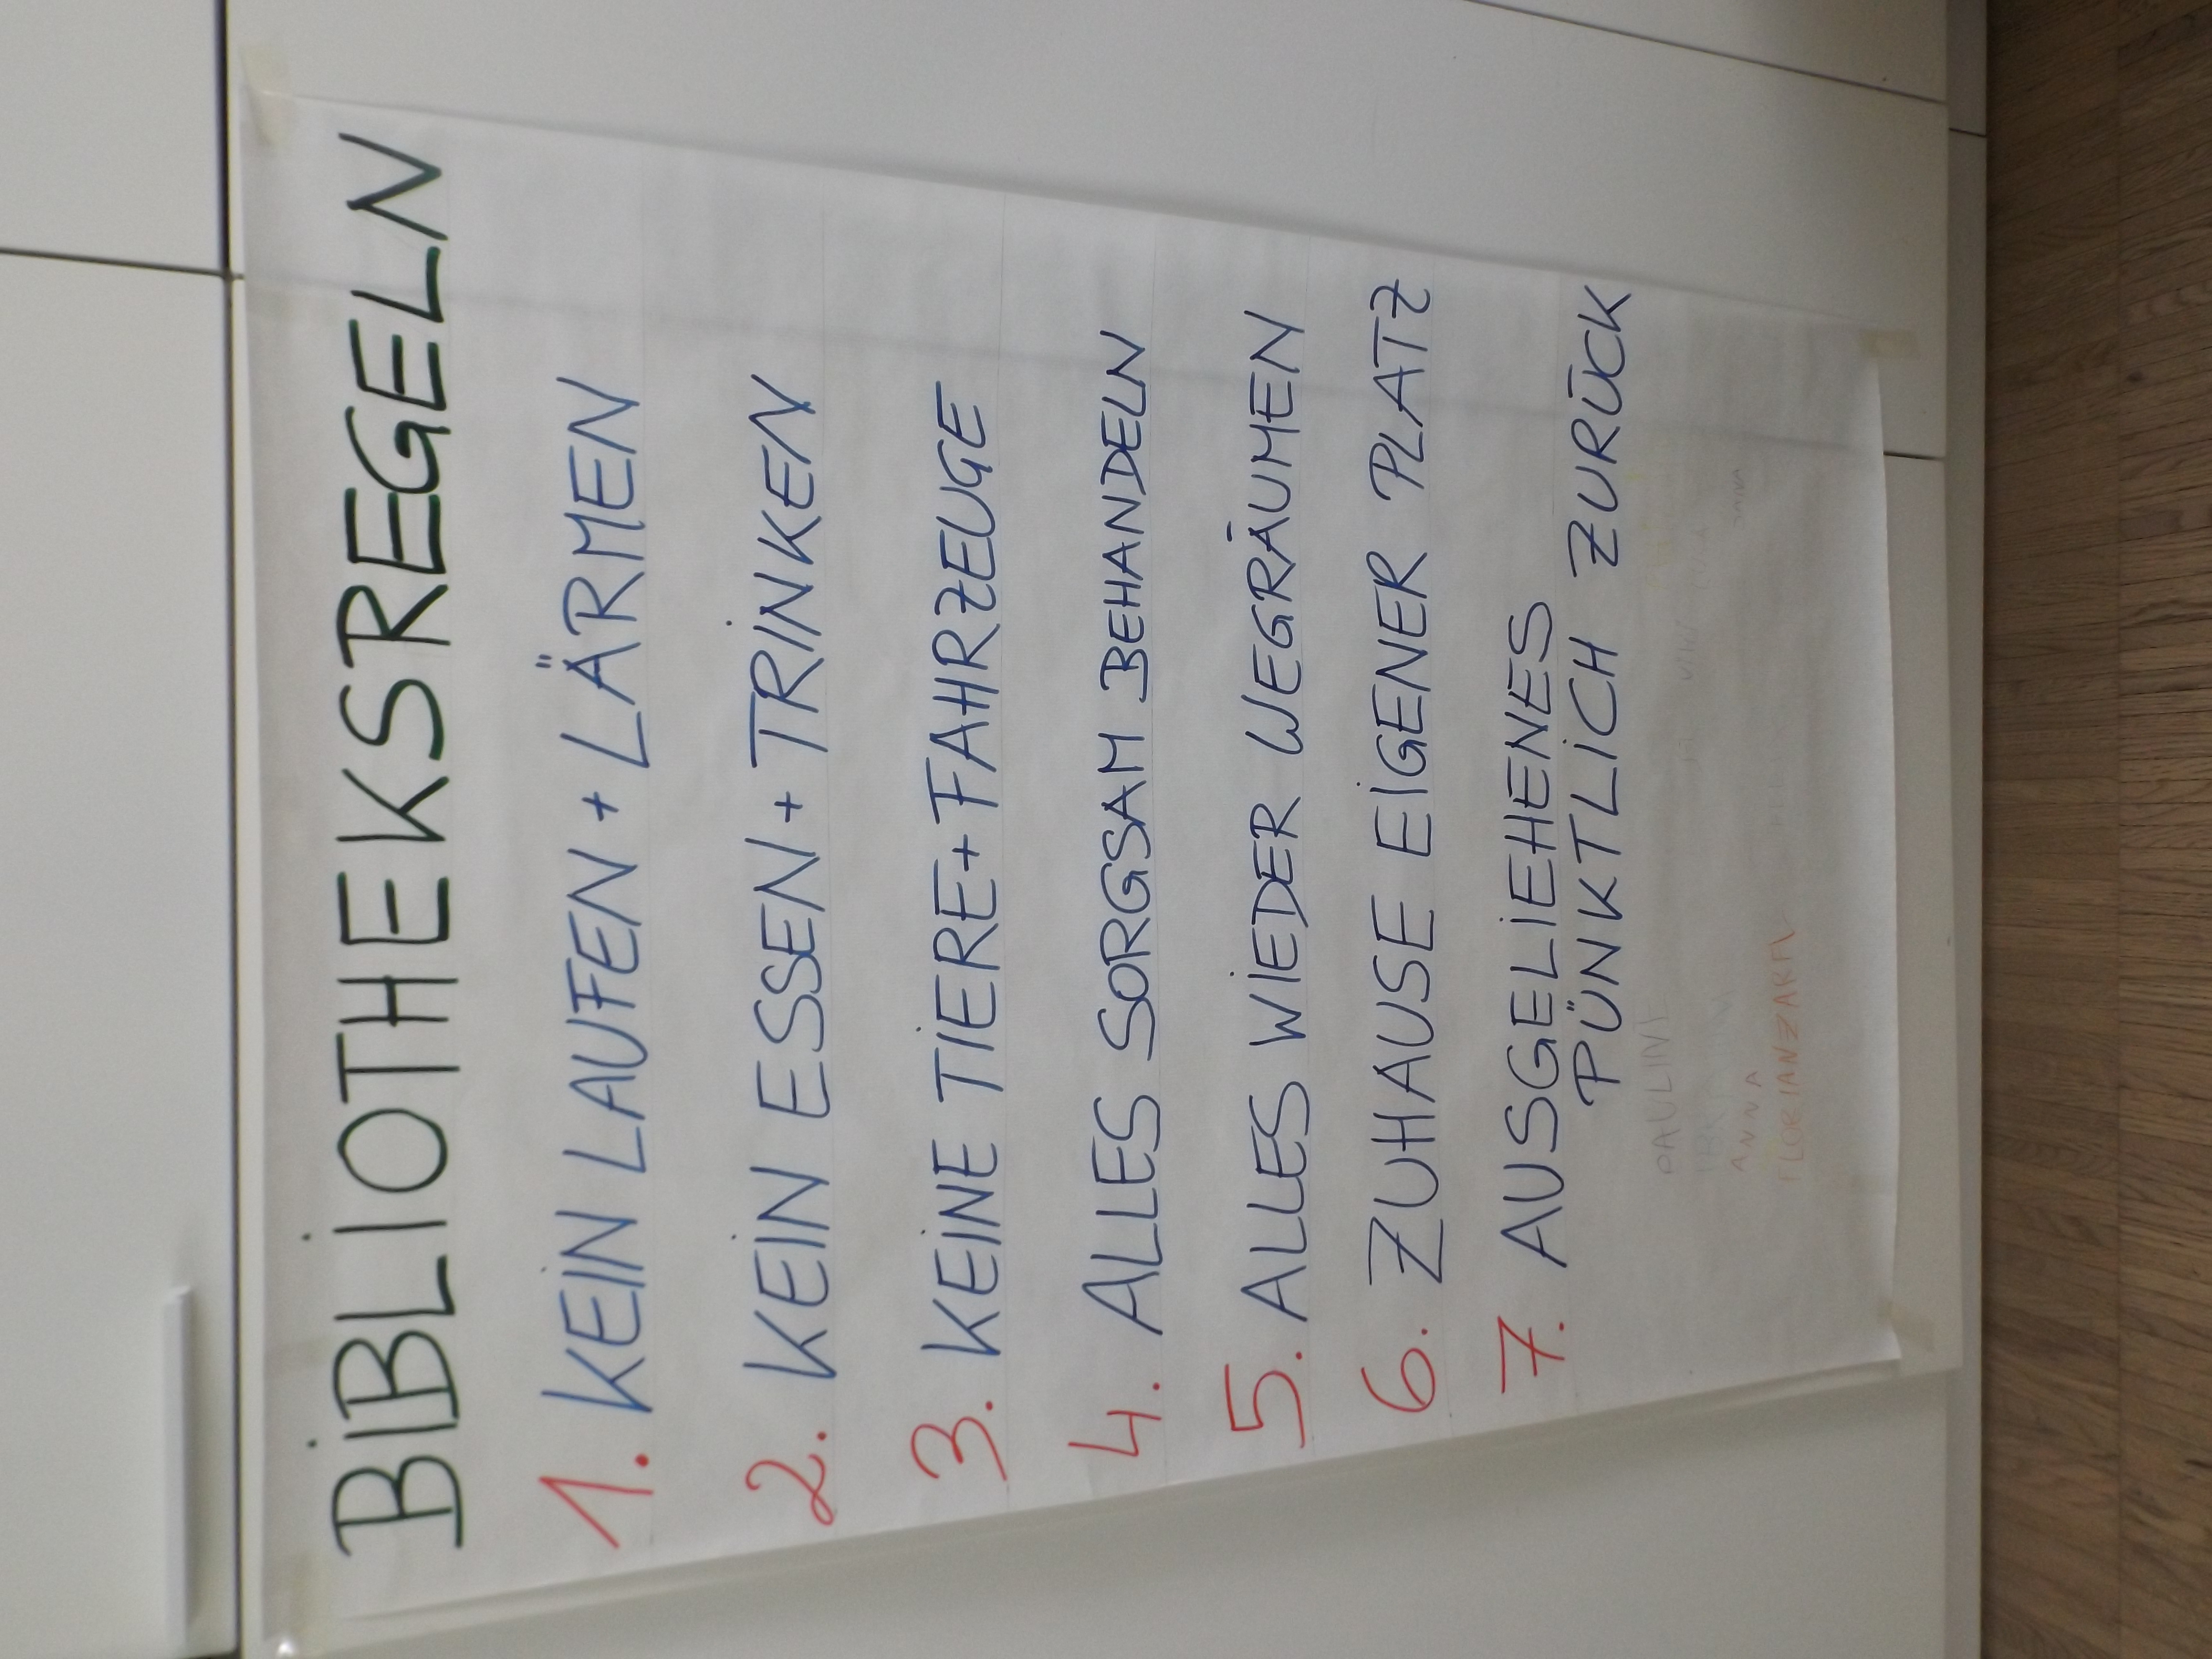 BIBLIOTHEKSREGELN
1. KEIN LAUFEN + LÄRMEN
2. KEIN ESSEN + TRINKEN
3. KEINE TIERE + FAHRZEUGE
4. ALLES SORGSAM BEHANDELN
5. ALLES WIEDER WEGRÄUMEN
6. ZUHAUSE EIGENER PLATZ
7. AUSGELIEHENES
PÜNKTLICH ZURÜCK
ANNA